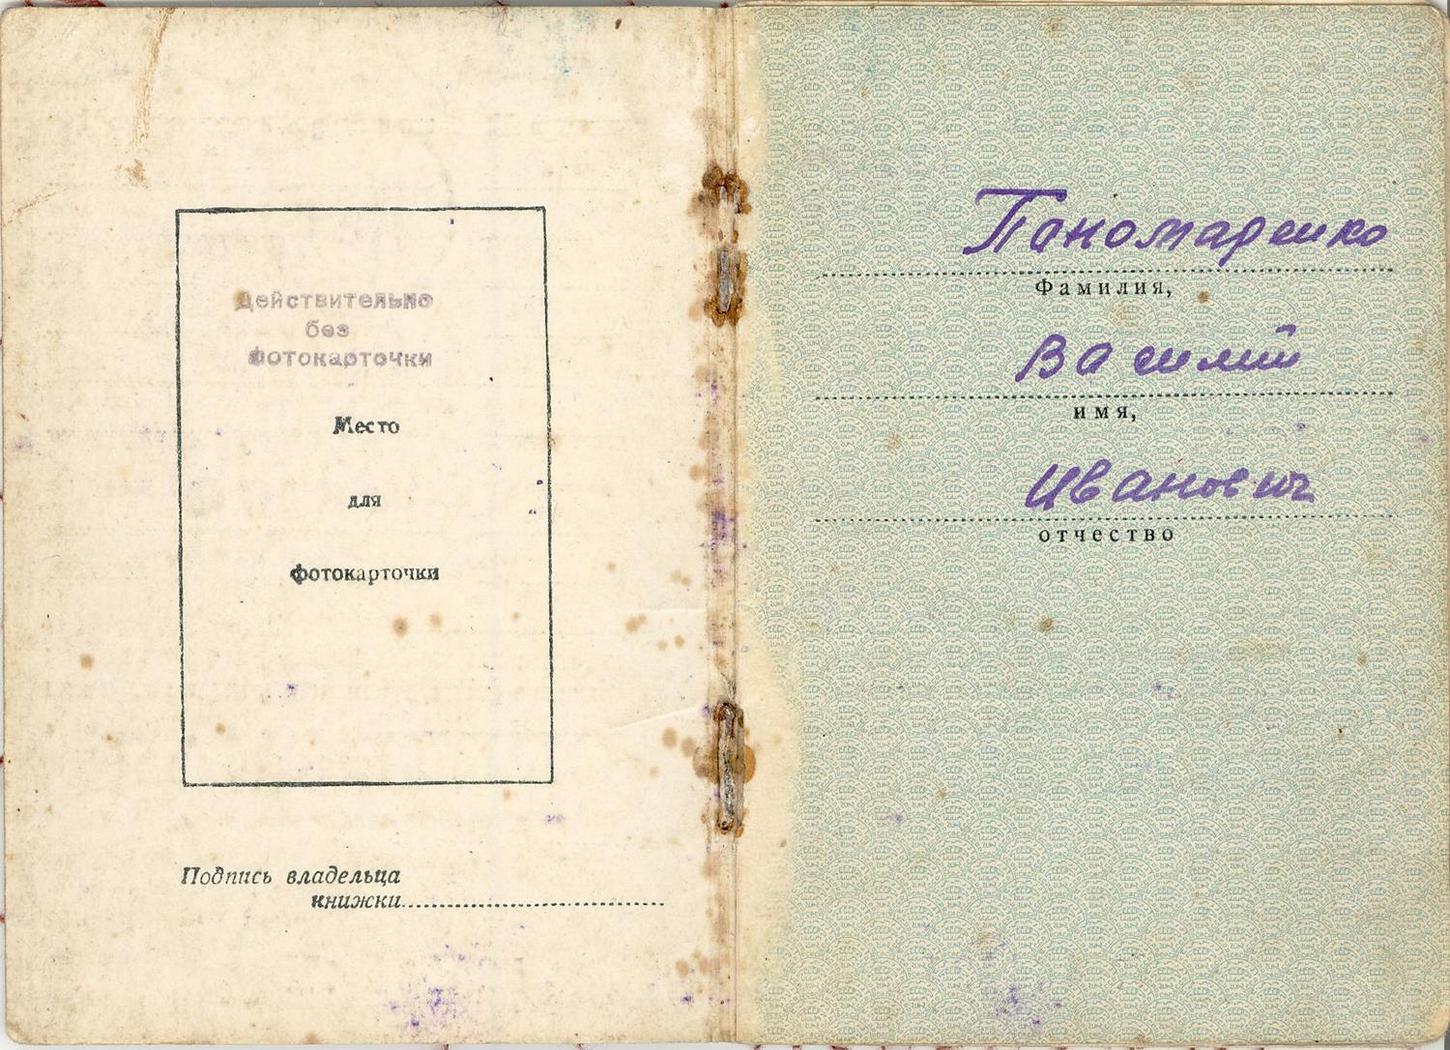 Действительно
без
фотокарточки
Место
для
фотокарточки
Подпись владельца
книжки
Пономаренко
Фамилия,
Василий
имя,
Иванович
отчество